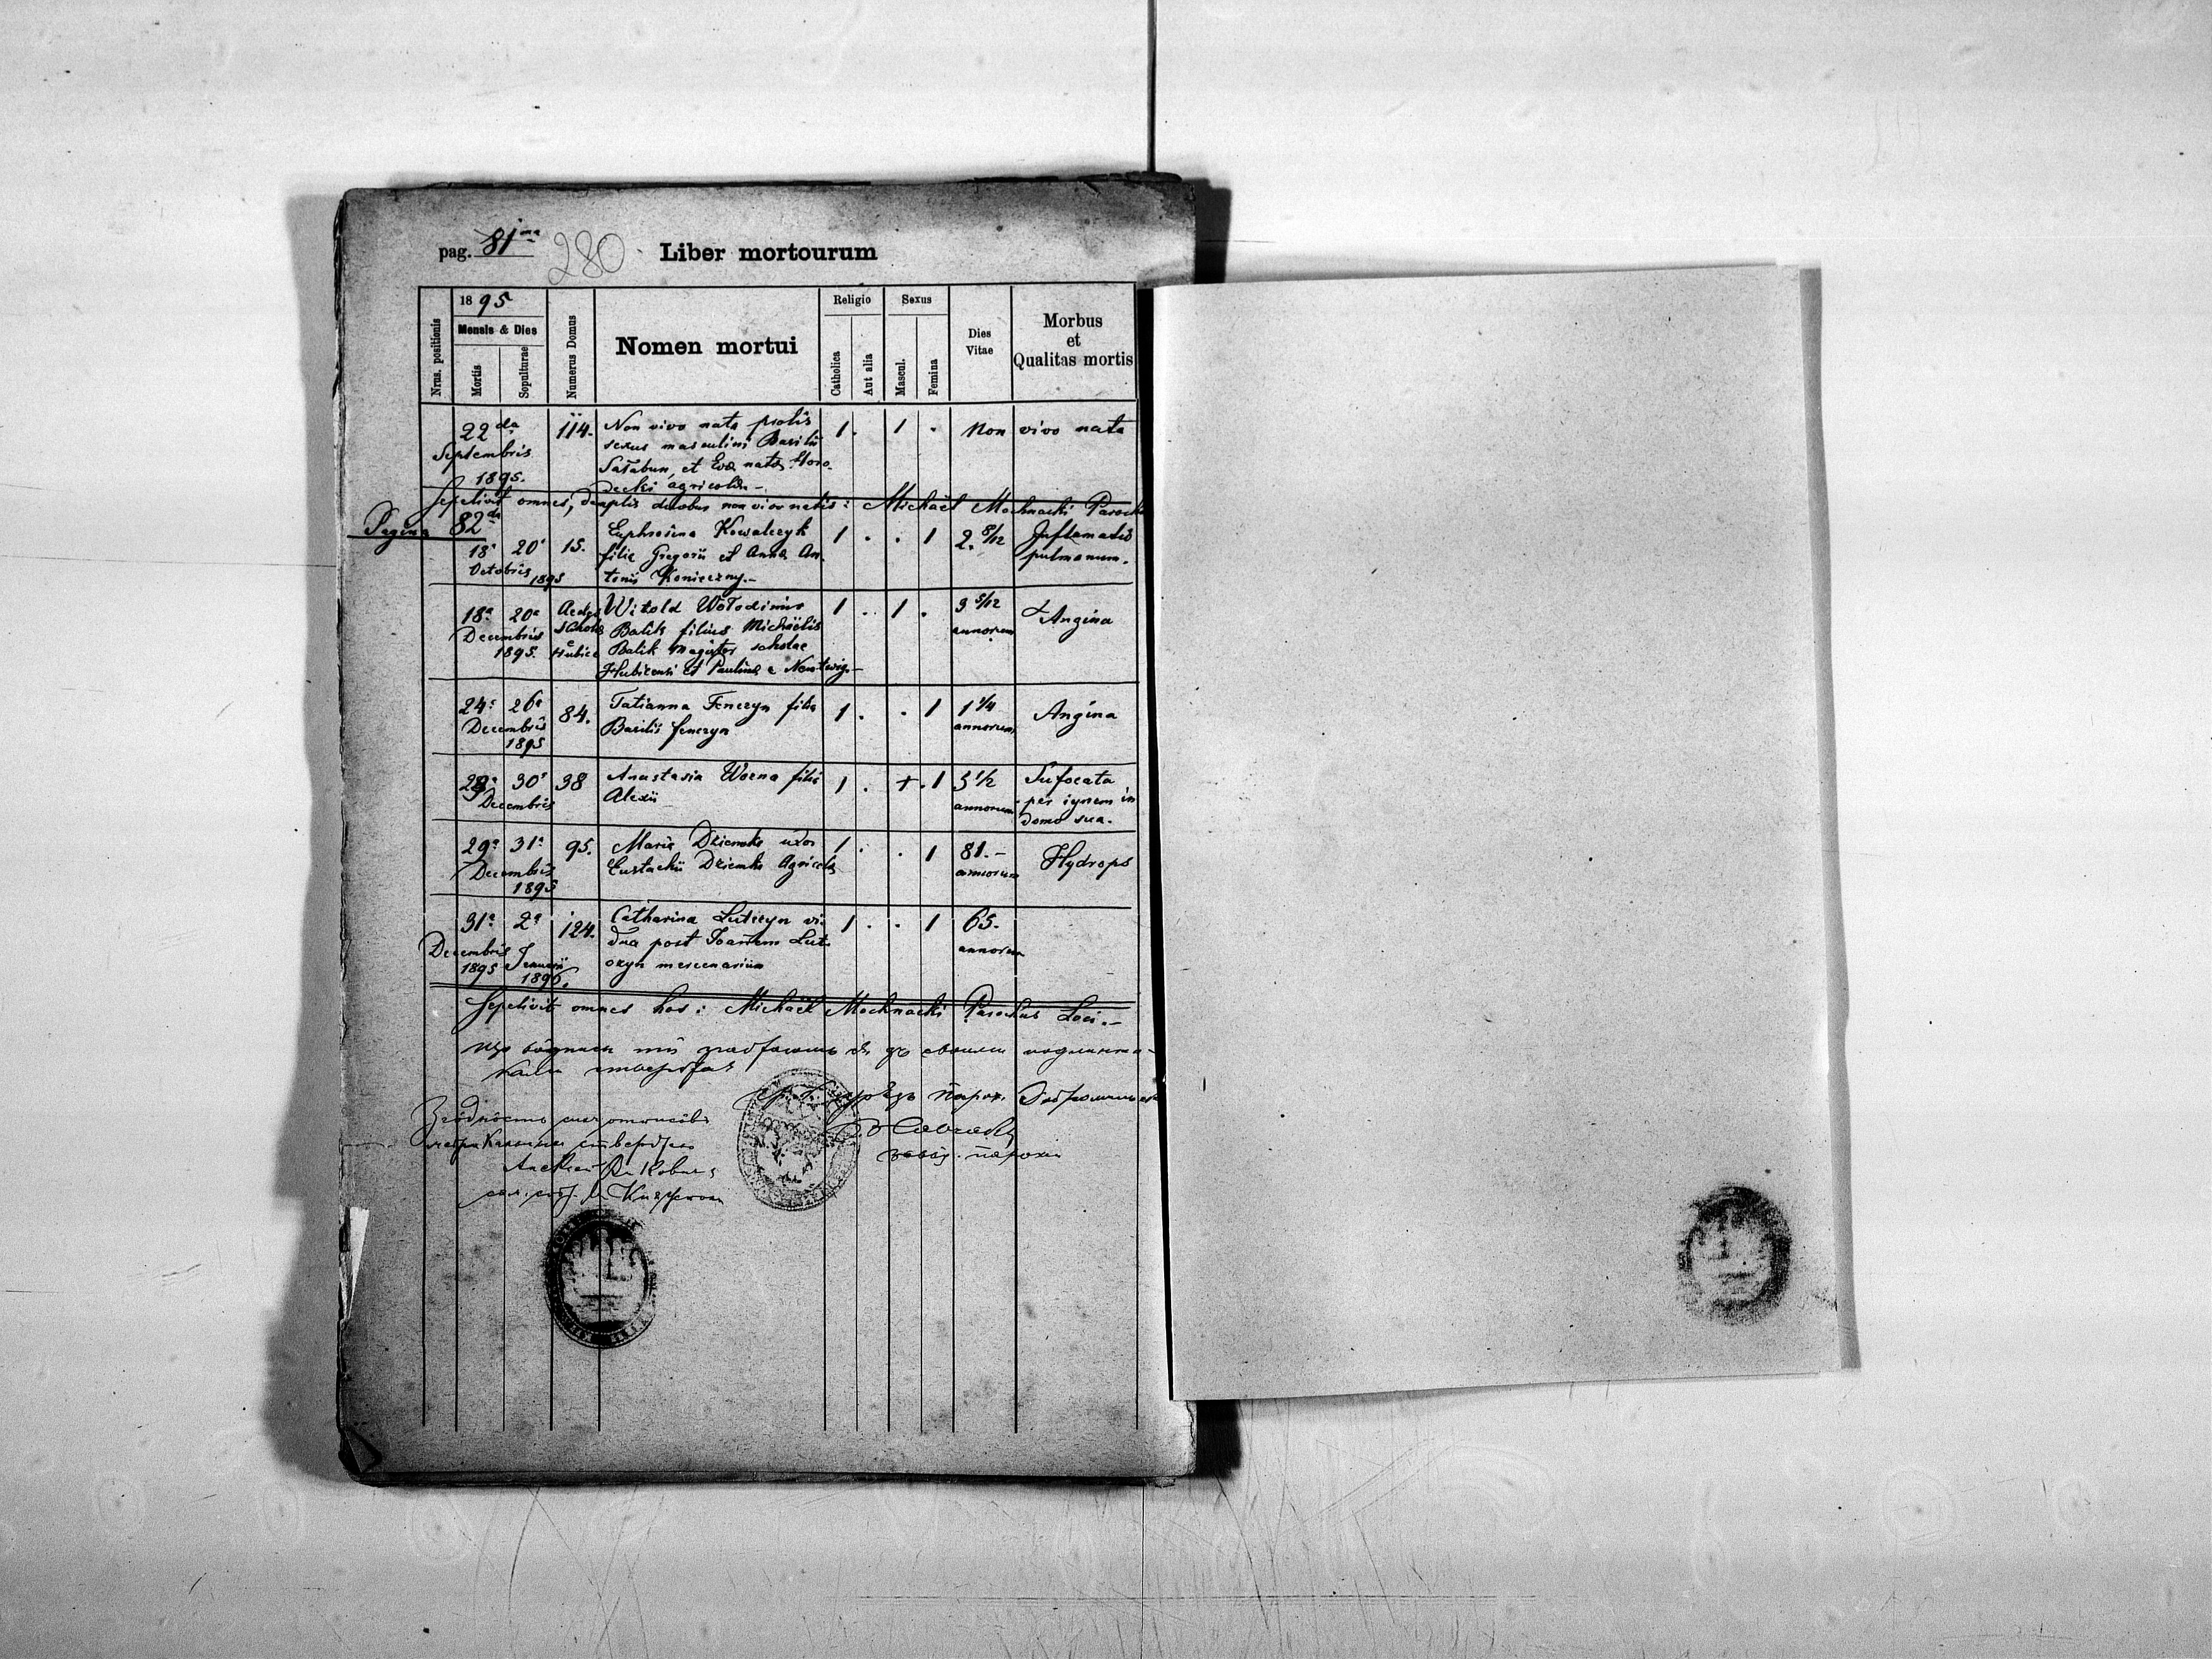 pag. 81ma 280 Liber mortourum
Nrus. positionis
1895
Mensis & Dies
Mortis
Sepulturae
Numerus Domus
Nomen mortui
Religio
Catholica
Aut alia
Sexus
Mascul.
Femina
Dies Vitae
Morbus et Qualitas mortis
22da 114. Non vivo nata prolis 1 . 1 . Non vivo nata
Septembris sexus masculini Basilii
et Evae nata Horo-
1895. decki agricolae
Sepelivit omnes, demptis duobus non vivo natis: Michaël Mochnacki Paroch
Pagina 82da
18a 20a 15. Euphrosina Kowalczyk 1 . . 1 2. 8/12 Inflamatio
Octobris 1895 filia Gregorii et Anna An- pulmonum.
tonii Konieczny.-
18a 20a Aedes Witold Wołodimir 1 . 1 . 3 5/12 Angina
Decembris schola Balik filius Michaëlis annorum
1895. Hubice Balik magister scholae
Hubicensi et Paulina e Nentwig.-
24a 26a 84. Tatianna Fenczyn filia 1 . . 1 1 1/4 Angina
Decembris Basilii Fenczyn annorum
1895
28a 30a 38 Anastasia Worna filia 1 . + . 1 5 1/2 Sufocata
Decembris Alexii annorum per ignem in
domo sua.
29a 31a 95. Maria Dziemko uxor 1 . . 1 81.- Hydrops
Decembris Eustachii Dziemko Agricola annorum
1895
31a 2a 124. Catharina Lutczyn vi- 1 . . 1 65.
Decembris Januarii dua post Joannem Lut- annorum
1895 1896. czyn mercenarium
Sepelivit omnes hos: Michaël Mochnacki Parochus Loci.-